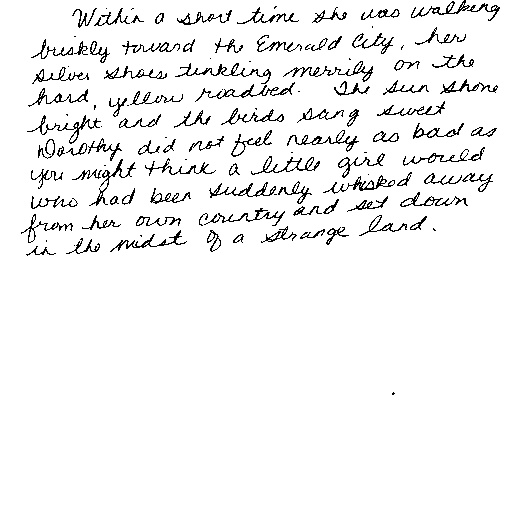 Within a short time she was walking
briskly toward the Emerald City, her
Silver Shoes tinkling merrily on the
hard, yellow roadbed. The sun shone
bright and the birds sang sweet
Dorothy did not feel nearly as bad as
you might think a little girl would
who had been suddenly whisked away
from her own country and set down
in the midst of a strange land.